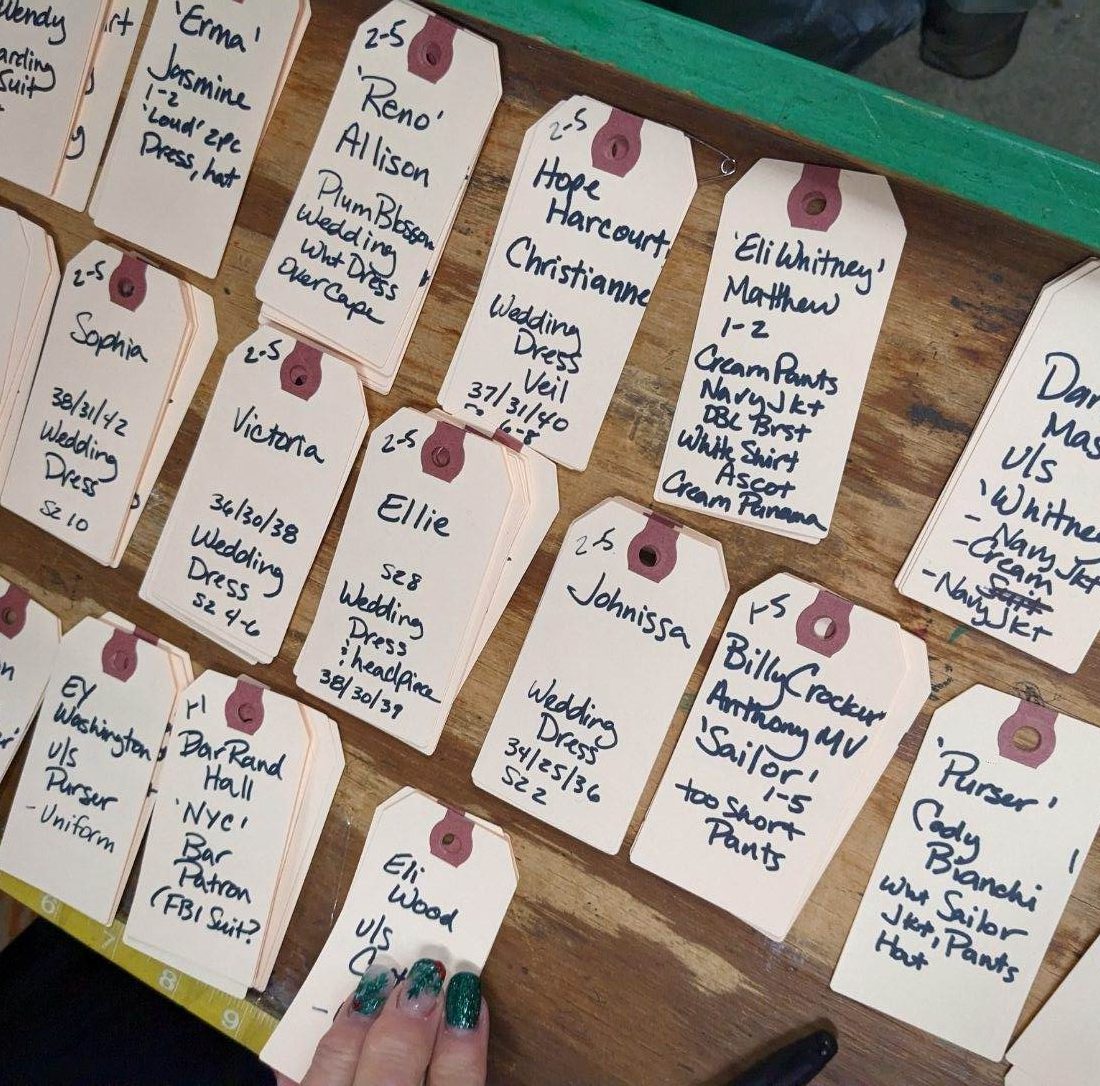 Wendy
Suit
'Erma'
Jasmine
1-2
'Loud' 2pc
Dress, hat
2-5
'Reno'
Allison
Plum Blossom
Wedding
Wht Dress
Over Cape
2-5
Hope
Harcourt
Christianne
Wedding
Dress
Veil
37/31/40
6-8
'Eli Whitney'
Matthew
1-2
Cream Pants
Navy Jkt
DBL Brst
White Shirt
Ascot
Cream Panama
2-5
Sophia
38/31/42
Wedding
Dress
SZ 10
2-5
Victoria
36/30/38
Wedding
Dress
SZ 4-6
2-5
Ellie
SZ 8
Wedding
Dress
& headpiece
38/30/39
2-5
Johnissa
Wedding
Dress
34/25/36
SZ 2
1-5
Billy Crocker
Anthony MV
'Sailor'
1-5
too short
Pants
Dar
Mas
u/s
'Whitney
- Navy Jkt
- Cream
- Navy Jkt
EY
Washington
u/s
Purser
- Uniform
DarRand
Hall
'NYC'
Bar
Patron
(FBI Suit?
Eli
Wood
u/s
'Purser'
Cody
Bianchi
Wht Sailor
Jkt, Pants
Hat
6
7
8
9